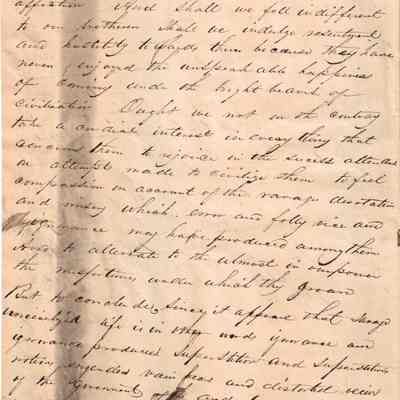 affection And shall we fell indifferent
to our brethren Shall we indulge resentment
and hostility towards them because they have
never enjoyed the unspeakable happiness
of coming under the bright beams of
Civilization Ought we not on the contrary
take a cordial interest in every thing that
concerns them to rejoice in the success attendant
on attempt made to civilize them to feel
compassion on account of the ravage desolation
and misery which error and folly vice and
ignorance may hape produced among them
to alleviate to the utmost in our power
the misfortunes under which they groan
But to conclude, Since it appears that Savage
uncivilized life is in other words ignorance and
ignorance produces Superstition and Superstitious
notions engenders vain fears and distorted views
of the Government of